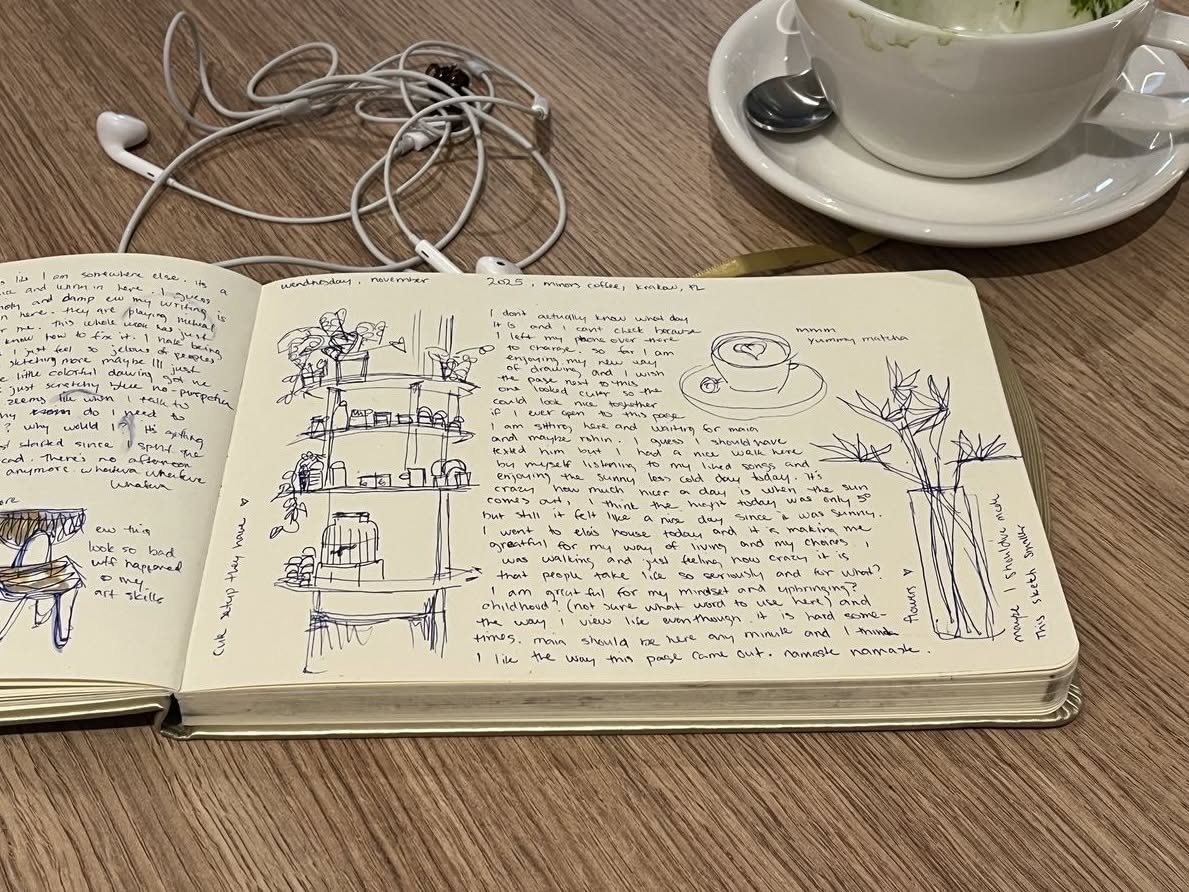 like I am somewhere else. its a
and warm in here. I guess
and damp ew my writing is
in here. they are playing
me. this whole week has just
know how to fix it. I hate being
I just feel so jelous of peoples
sketching more maybe I'll just
little colorful drawing got me
just scratchy blue no
seems like when I talk to
my do I need to
? why would I it's anything
started since I spend the
There's no afternoon
anymore. whateva whateva
whateva
ew this
look so bad
wtf happened
to my
art skills
wendnesday, november 2025, minors coffee, krakow, PL
cute setup they have
I dont actually know what day
it is and I cant check because
I left my phone over there
to charge. so far I am
enjoying my new way
of drawing and I wish
the page next to this
one looked cuter so the
could look nice together
if I ever open to this page
I am sitting here and waiting for maia
and maybe rohin. I guess I should have
texted him but I had a nice walk here
by myself listening to my liked songs and
enjoying the sunny less cold day today. It's
crazy how much nicer a day is when the sun
comes out, I think the hight today was only 5°
but still it felt like a nice day since it was sunny.
I went to elas house today and it is making me
greatful for my way of living and my choices. I
was walking and just feeling how crazy it is
that people take life so seriously and for what?
I am greatful for my mindset and upbringing?
childhood? (not sure what word to use here) and
the way I view life eventhough it is hard some-
times. maia should be here any minute and I think
I like the way this page came out. namaste namaste.
mmm
yummy matcha
flowers
maybe I shouldve made
this sketch smaller